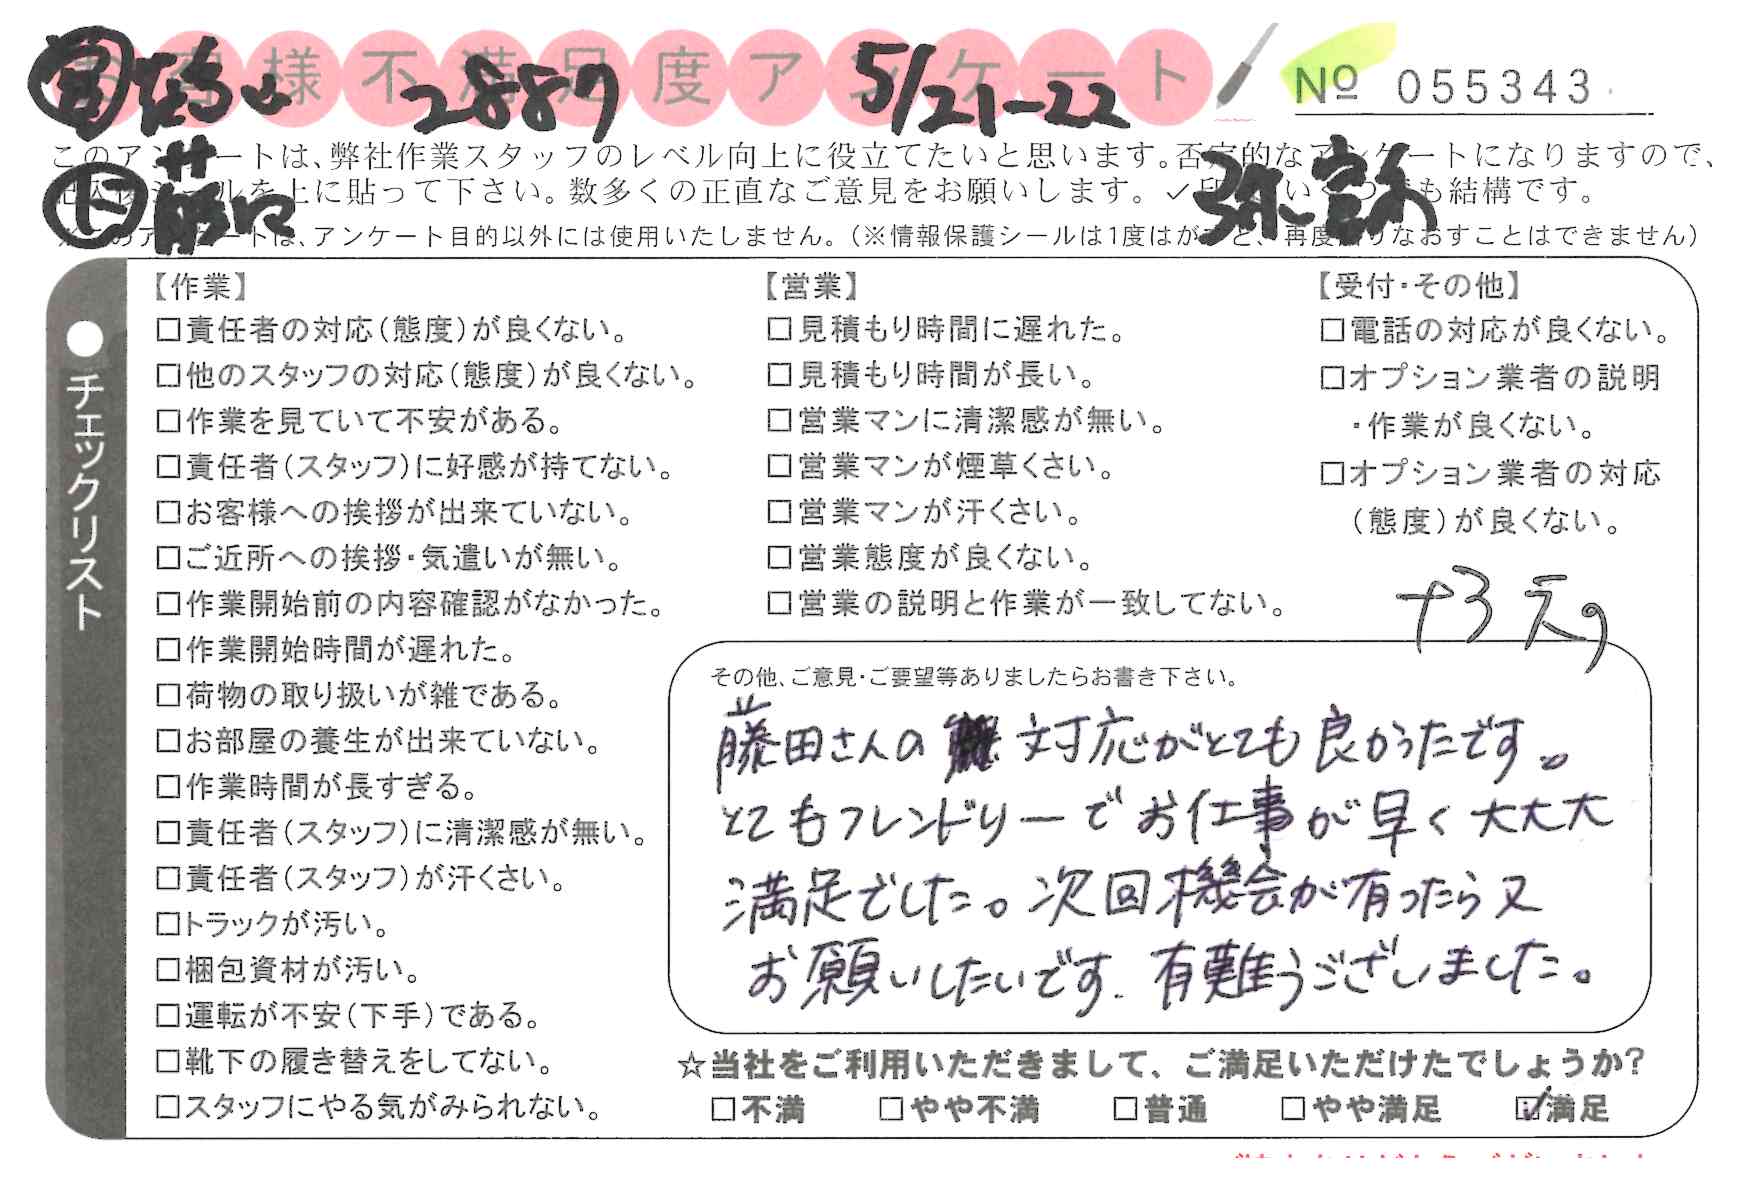 お客様不満足度アンケート
2887 5/21-22
Nº 055343
このアンケートは、弊社作業スタッフのレベル向上に役立てたいと思います。否定的なアンケートになりますので、
記入後シールを上に貼って下さい。数多くの正直なご意見をお願いします。✓印はいくつでも結構です。
※このアンケートは、アンケート目的以外には使用いたしません。（※情報保護シールは1度はがすと、再度貼りなおすことはできません）
●チェックリスト
【作業】
□責任者の対応（態度）が良くない。
□他のスタッフの対応（態度）が良くない。
□作業を見ていて不安がある。
□責任者（スタッフ）に好感が持てない。
□お客様への挨拶が出来ていない。
□ご近所への挨拶・気遣いが無い。
□作業開始前の内容確認がなかった。
□作業開始時間が遅れた。
□荷物の取り扱いが雑である。
□お部屋の養生が出来ていない。
□作業時間が長すぎる。
□責任者（スタッフ）に清潔感が無い。
□責任者（スタッフ）が汗くさい。
□トラックが汚い。
□梱包資材が汚い。
□運転が不安（下手）である。
□靴下の履き替えをしてない。
□スタッフにやる気がみられない。
【営業】
□見積もり時間に遅れた。
□見積もり時間が長い。
□営業マンに清潔感が無い。
□営業マンが煙草くさい。
□営業マンが汗くさい。
□営業態度が良くない。
□営業の説明と作業が一致してない。
【受付・その他】
□電話の対応が良くない。
□オプション業者の説明
・作業が良くない。
□オプション業者の対応
（態度）が良くない。
その他、ご意見・ご要望等ありましたらお書き下さい。
藤田さんの 対応がとても良かったです。
とてもフレンドリーでお仕事が早く大大大
満足でした。次回機会が有ったら又
お願いしたいです。有難うございました。
☆当社をご利用いただきまして、ご満足いただけたでしょうか?
□不満 □やや不満 □普通 □やや満足 ☑満足